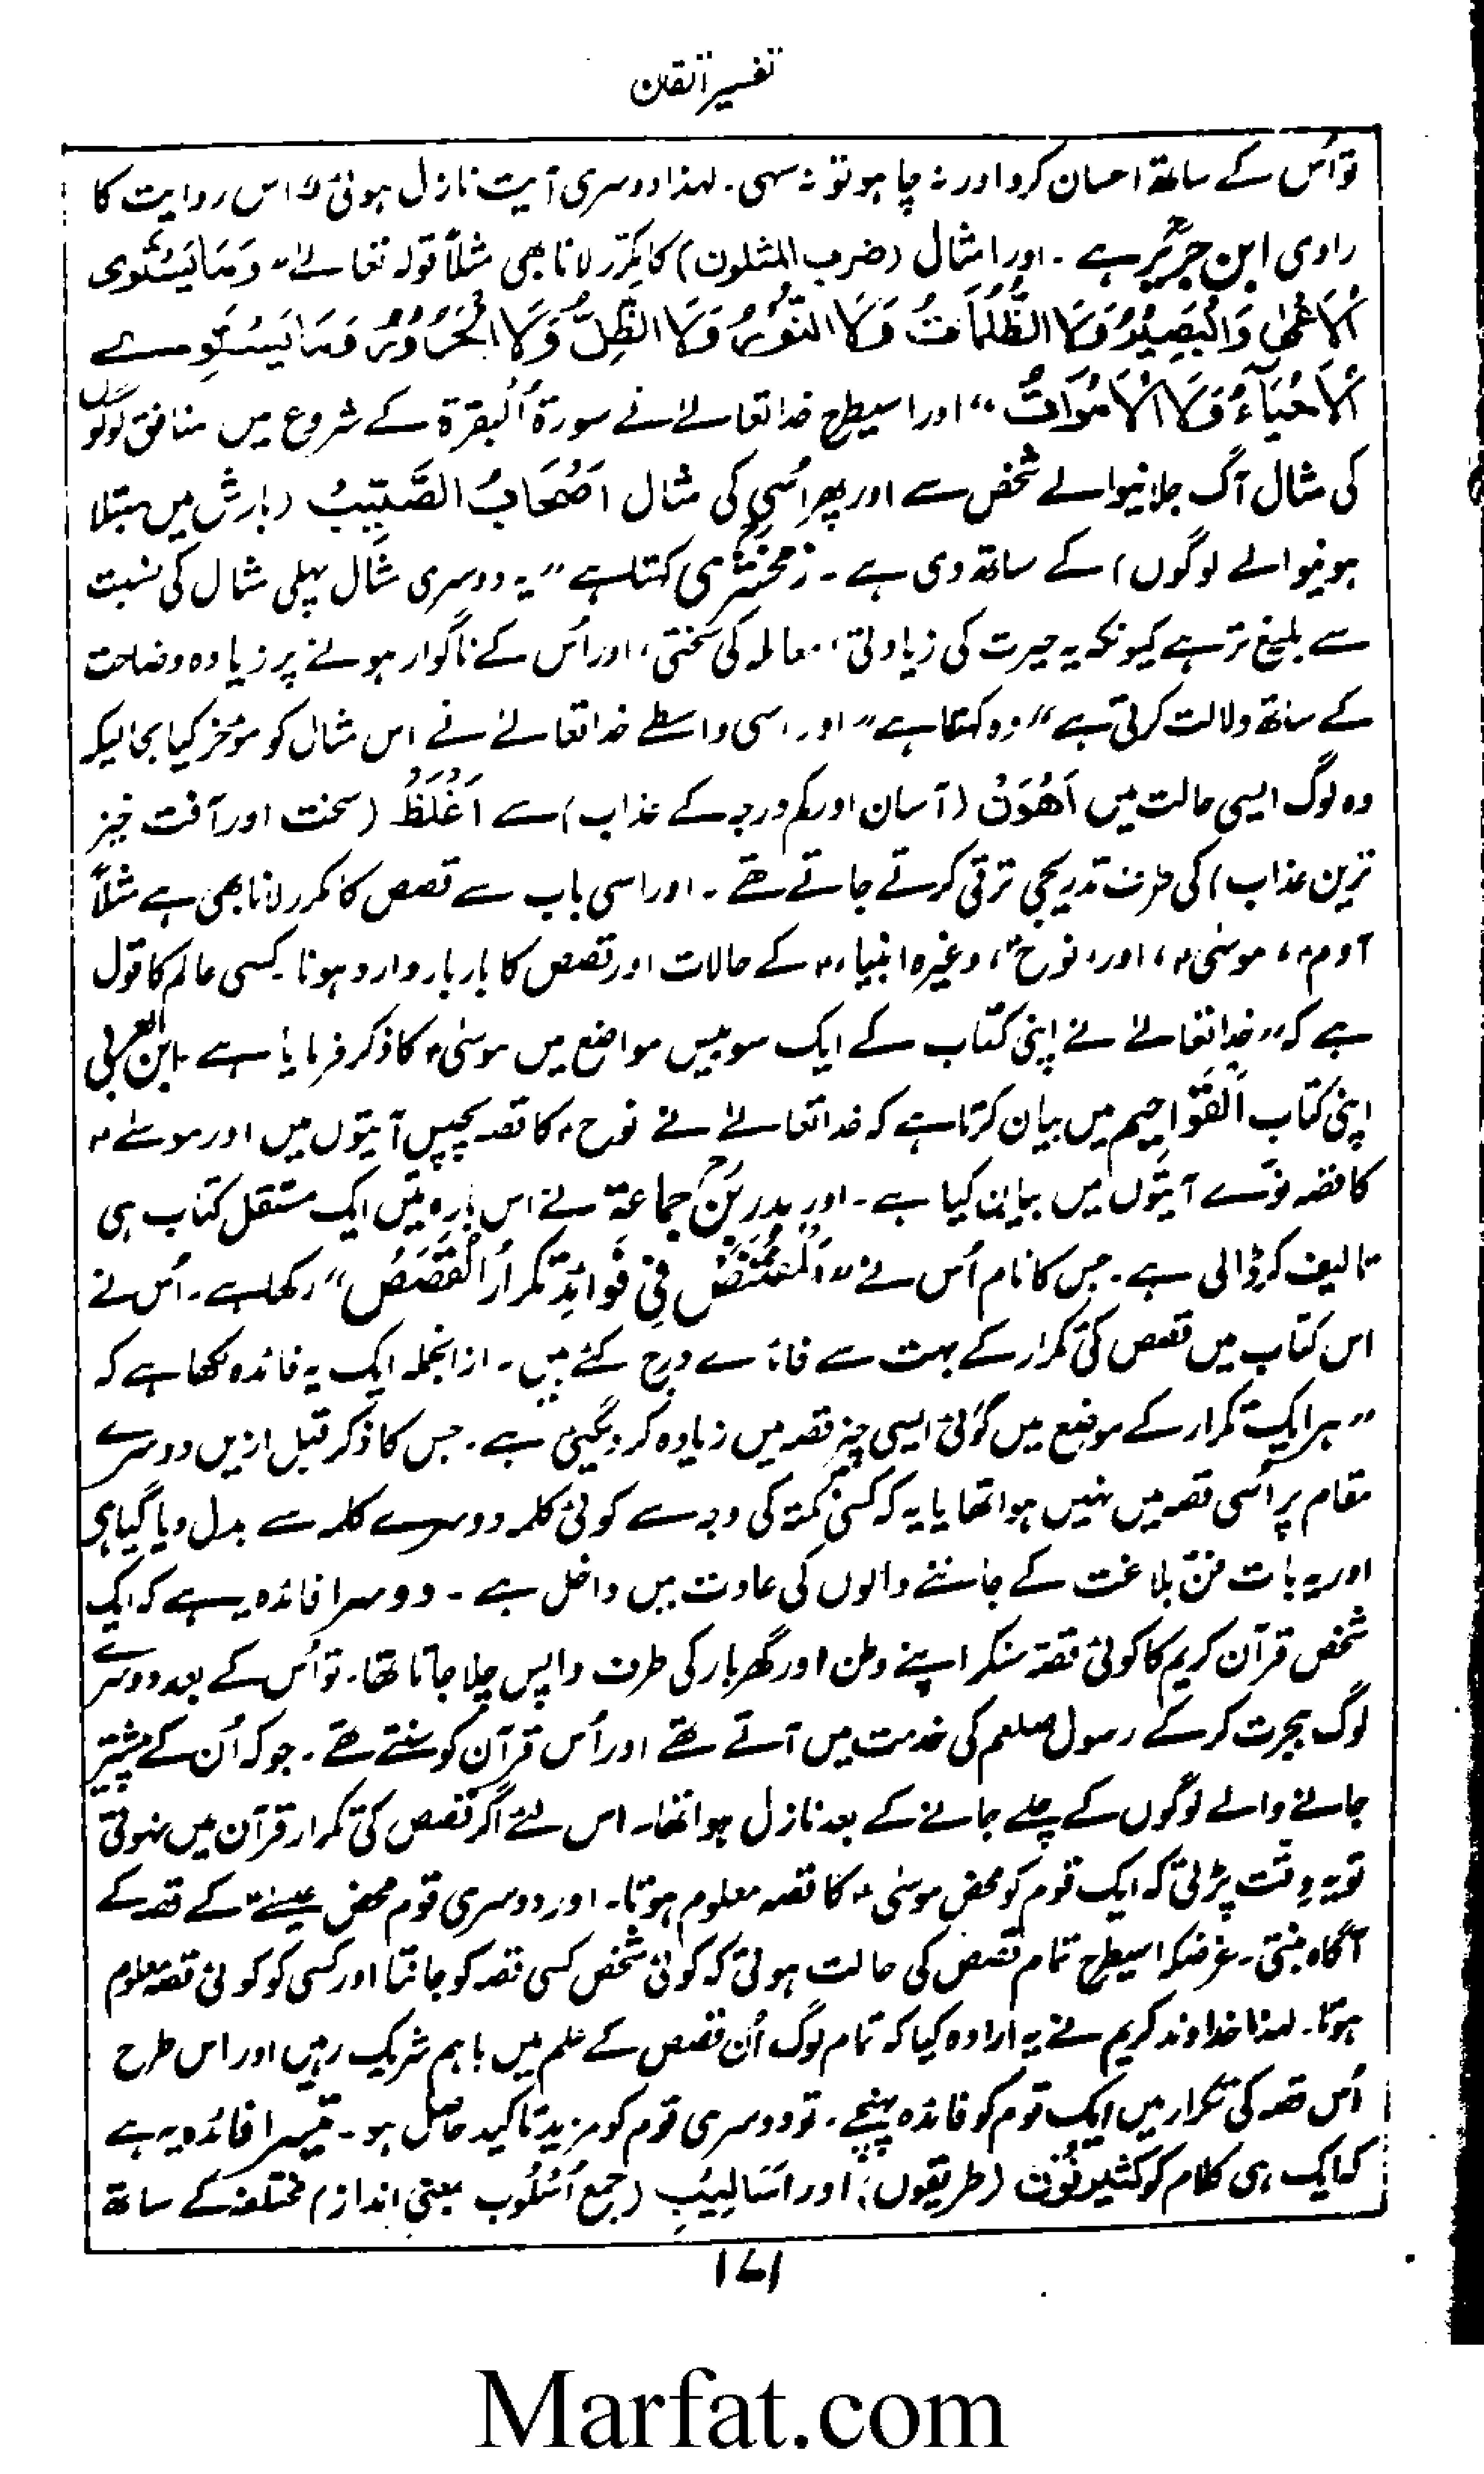 تفسیر اتقان
تو اُس کے ساتھ احسان کرو اور نہ چاہو تو نہ سہی۔ لہذا دوسری آیت نازل ہوئی" اس روایت کا
راوی ابن جریرؒ ہے۔ اور امثال (ضرب المثلوں) کا مکرّر لانا بھی مثلاً قولہ تعالےٰ "وَمَا یَسْتَوِی
الْاَعْمٰی وَالْبَصِیْرُ وَلَا الظُّلُمَاتُ وَلَا النُّوْرُ وَلَا الظِّلُّ وَلَا الْحَرُوْرُ وَمَا یَسْتَوِے
الْاَحْیَآءُ وَلَا الْاَمْوَاتُ" اور اسیطرح خدا تعالےٰ نے سورۃ اُلبقرۃ کے شروع میں منافق لوگوں
کی مثال آگ جلانیوالے شخص سے اور پھر اُسی کی مثال اَصْحَابُ الصَّیِّبِ (بارش میں مبتلا
ہونیوالے لوگوں) کے ساتھ دی ہے۔ زمخشریؒ کہتا ہے "یہ دوسری مثال پہلی مثال کی نسبت
سے بلیغ تر ہے کیونکہ یہ حیرت کی زیادتی، معاملہ کی سختی، اور اُس کے ناگوار ہونے پر زیادہ وضاحت
کے ساتھ دلالت کرتی ہے" وہ کہتا ہے" اور اسی واسطے خدا تعالےٰ نے اس مثال کو مؤخر کیا بحالیکہ
وہ لوگ ایسی حالت میں اَھْوَنُ (آسان اور کم درجہ کے عذاب) سے اَغْلَظُ (سخت اور آفت خیز
ترین عذاب) کی طرف تدریجی ترقی کرتے جاتے تھے۔ اور اسی باب سے قصص کا مکرر لانا بھی ہے مثلاً
آدمؑ، موسٰیؑ، اور، نوحؑ، وغیرہ انبیاءؑ کے حالات اور قصص کا بار بار وارد ہونا۔ کسی عالم کا قول
ہے کہ "خدا تعالےٰ نے اپنی کتاب کے ایک سو بیس مواضع میں موسٰیؑ کا ذکر فرمایا ہے۔ ابن العربی
اپنی کتاب اَلقَوَاصِم میں بیان کرتا ہے کہ خدا تعالےٰ نے نوحؑ کا قصہ پچیس آیتوں میں اور موسٰےؑ
کا قصہ نوّے آیتوں میں بیان کیا ہے۔ اور بدر بنؒ جماعۃ نے اس بارہ میں ایک مستقل کتاب ہی
تالیف کر ڈالی ہے۔ جس کا نام اُس نے "اَلْمُقْتَنَصُ فِی فَوَائِدِ تکرارُ الْقَصَصُ" رکھا ہے۔ اُس نے
اس کتاب میں قصص کی تکرار کے بہت سے فائدے درج کئے ہیں۔ ازانجملہ ایک یہ فائدہ لکھا ہے کہ
"ہر ایک تکرار کے موضع میں کوئی ایسی چیز قصہ میں زیادہ کر دیگئی ہے۔ جس کا ذکر قبل ازیں دوسرے
مقام پر اُسی قصہ میں نہیں ہوا تھا یا یہ کہ کسی نکتہ کی وجہ سے کوئی کلمہ دوسرے کلمہ سے بدل دیا گیا ہی
اور یہ بات فنّ بلاغت کے جاننے والوں کی عادت میں داخل ہے۔ دوسرا فائدہ یہ ہے کہ ایک
شخص قرآن کریم کا کوئی قصّہ سنکر اپنے وطن اور گھر بار کی طرف واپس چلا جاتا تھا۔ تو اُس کے بعد دوسرے
لوگ ہجرت کر کے رسول صلعم کی خدمت میں آتے تھے اور اُس قرآن کو سنتے تھے۔ جو کہ اُن کے پیشتر
جانے والے لوگوں کے چلے جانے کے بعد نازل ہوا تھا۔ اس لئے اگر قصص کی تکرار قرآن میں نہوتی
تو یہ دِقّت پڑتی کہ ایک قوم کو محض موسٰیؑ کا قصہ معلوم ہوتا۔ اور دوسری قوم محض عیسٰےؑ کے قصہ کے
آگاہ بنتی۔ غرضکہ اسیطرح تمام قصص کی حالت ہوتی کہ کوئی شخص کسی قصہ کو جانتا اور کسی کو کوئی قصہ معلوم
ہوتا۔ لہذا خداوند کریم نے یہ ارادہ کیا کہ تمام لوگ اُن قصص کے علم میں باہم شریک رہیں اور اس طرح
اُس قصہ کی تکرار میں ایک قوم کو فائدہ پہنچے۔ تو دوسری قوم کو مزید تاکید حاصل ہو۔ تیسرا فائدہ یہ ہے
کہ ایک ہی کلام کو کثیر فُنُون (طریقوں) اور اَسَالِیبِ (جمع اُسْلُوب بمعنی انداز) مختلفہ کے ساتھ
۱۷۱
Marfat.com